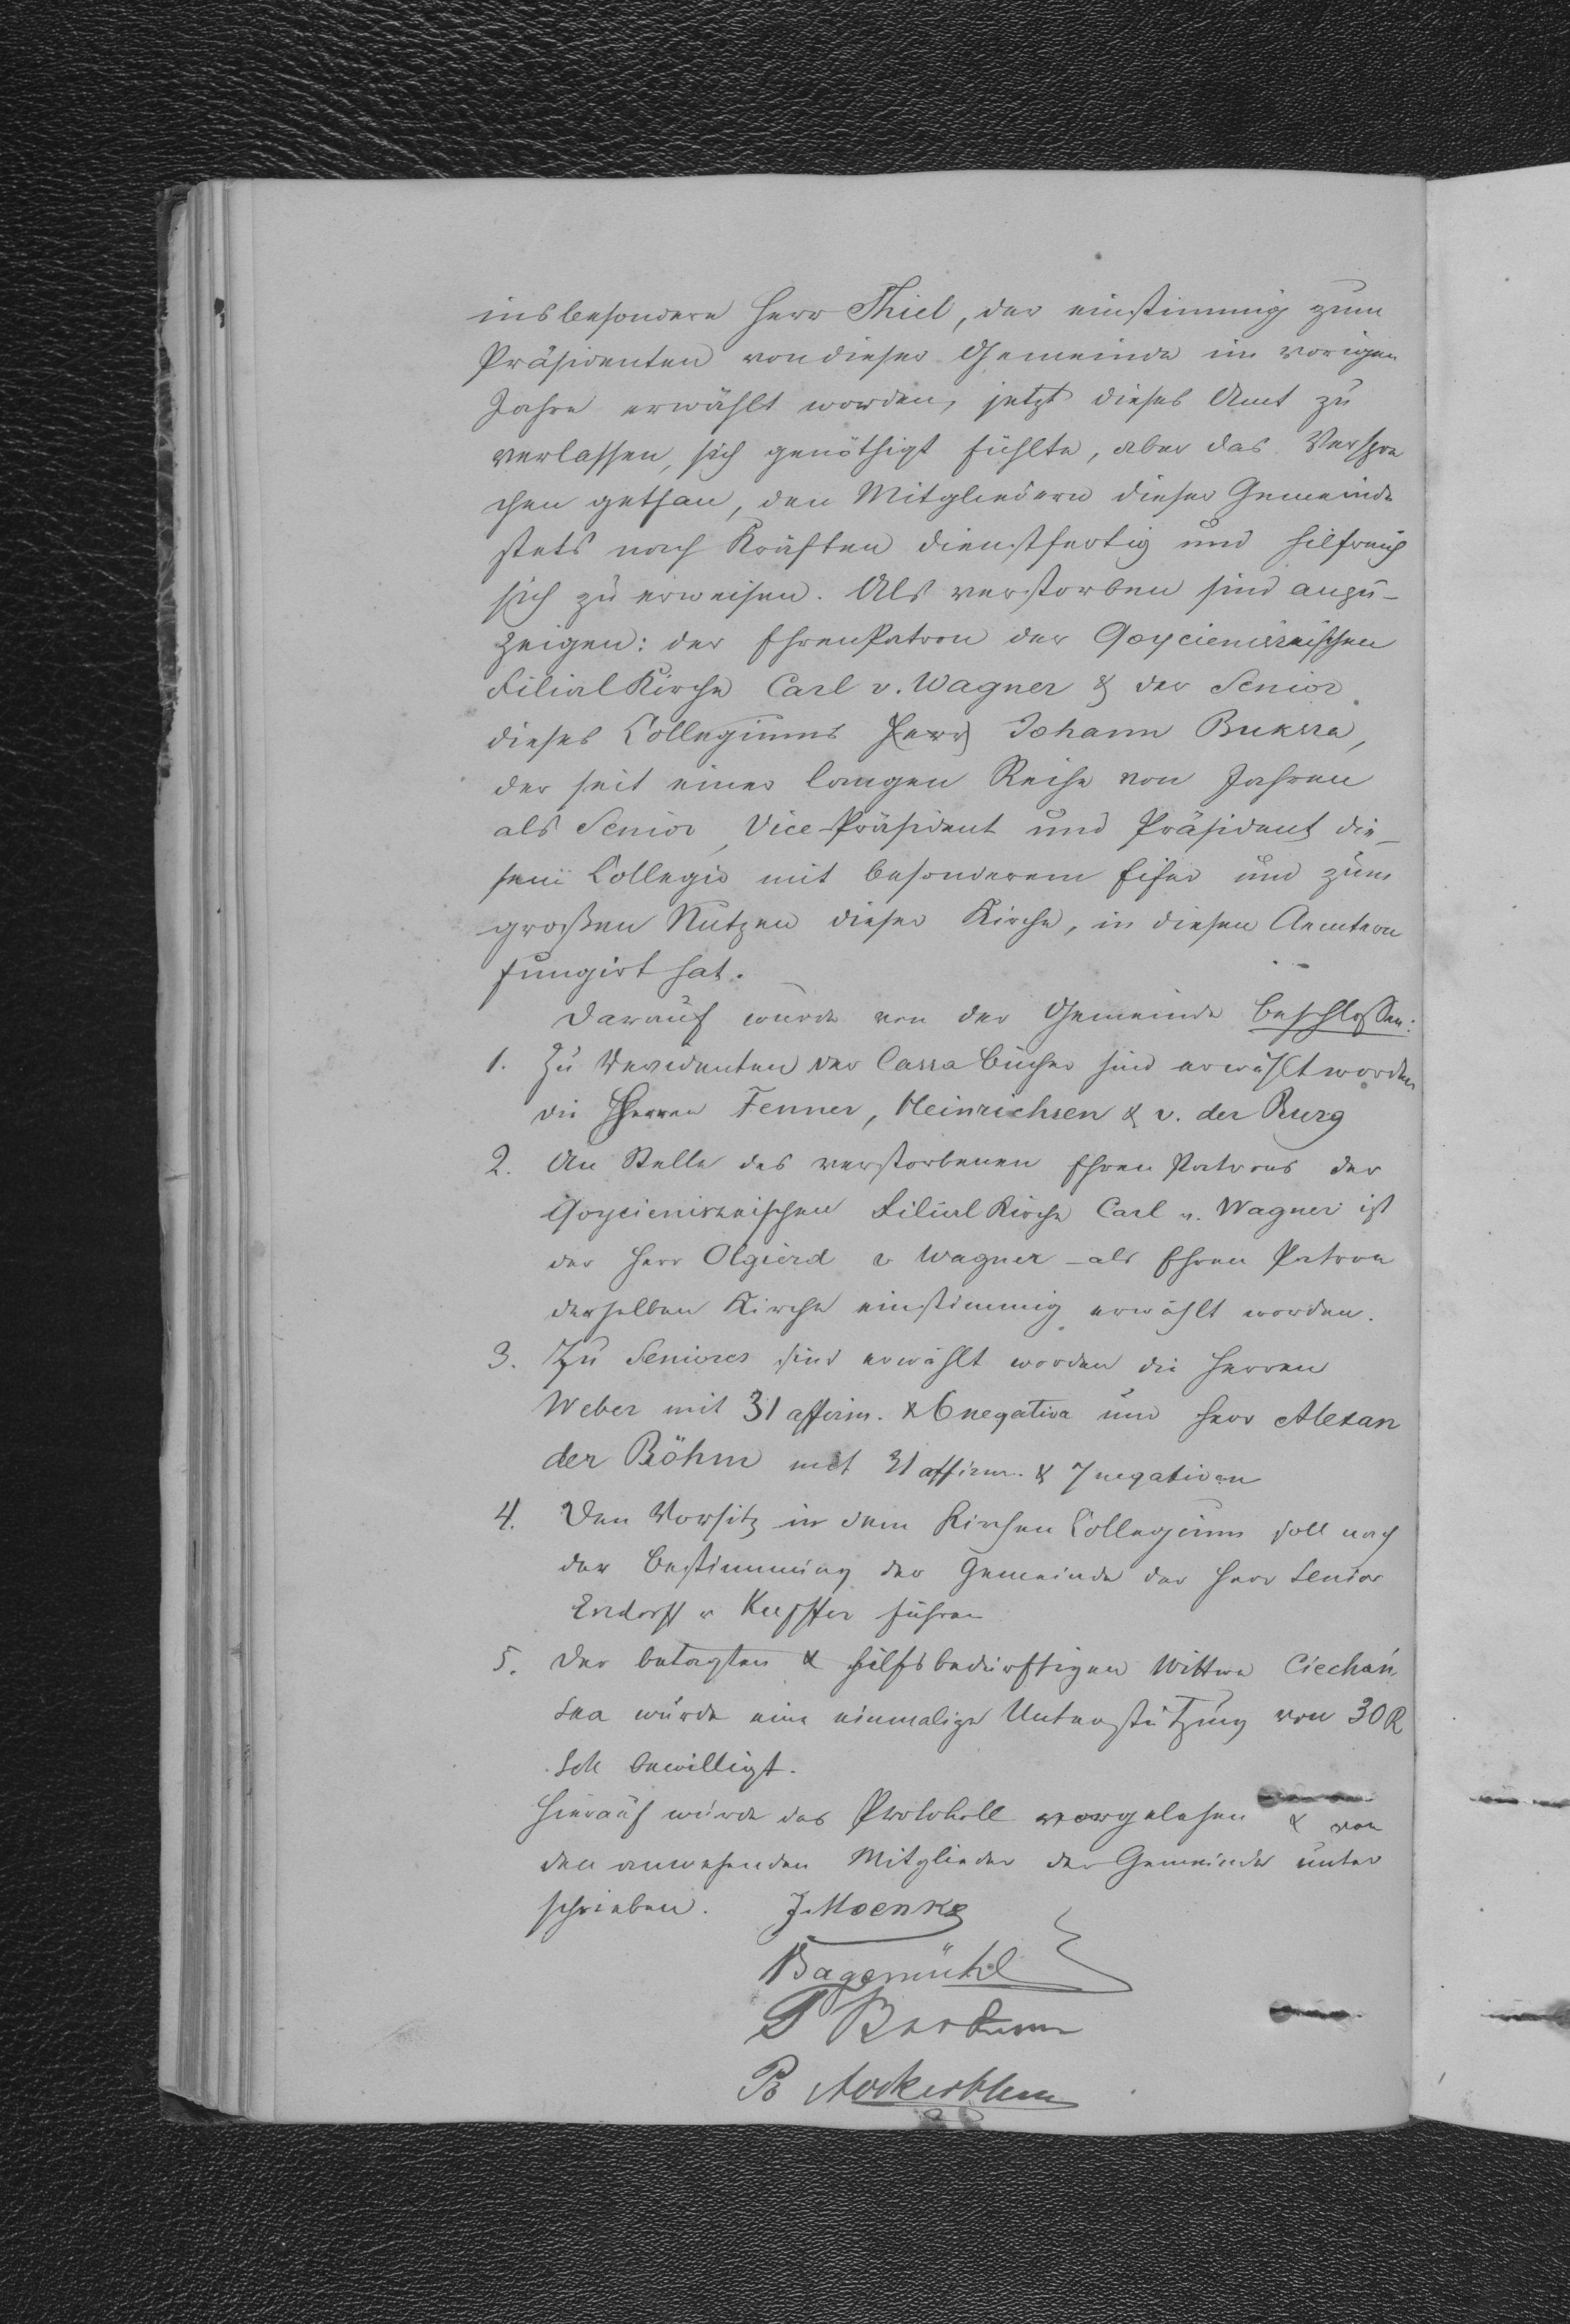 insbesondere Herr Thiel, der einstimmig zum
Präsidenten von dieser Gemeinde im vorigen
Jahre erwählt worden, jetzt dieses Amt zu
verlassen, sich genöthigt fühlte, aber das Verspre
chen gethan, den Mitgliedern dieser Gemeinde
stets nach Kräften dienstfertig und hilfreich
sich zu erweisen. Als verstorben sind anzu-
zeigen: der EhrenPatron der Goycieniszkischen
FilialKirche Carl v. Wagner & der Senior
dieses Collegiums Herr Johann Buksza,
der seit einer langen Reihe von Jahren
als Senior, Vice-Präsident und Präsident die-
sem Collegio mit besonderem Eifer und zum
großen Nutzen dieser Kirche, in diesen Aemtern
fungirt hat.
Darauf wurde von der Gemeinde beschlossen:
1. Zu Revidenten der Cassabücher sind erwählt worden
die Herren Fenner, Heinrichsen & v. der Burg
2. An Stelle des verstorbenen Ehren Patrons der
Goycieniszkischen Filial Kirche Carl v. Wagner ist
der Herr Olgierd v Wagner als Ehren Patron
derselben Kirche einstimmig erwählt worden.
3. Zu Seniores sind erwählt worden die Herren
Weber mit 31 affirm. & 6 negativa und Herr Alexan
der Böhm mit 31 affirm. & 7 negativen
4. Den Vorsitz in dem Kirchen Collegium soll nach
der Bestimmung der Gemeinde der Herr Senior
v Kupffer führen
5. Der betagten & hilfsbedürftigen Wittwe Ciechań
ska wurde eine einmalige Unterstützung von 30 R
Slb bewilligt.
Hierauf wurde das Protokoll vorgelesen & von
den anwesenden Mitglieder der Gemeinde unter
schrieben. J. Moenke
Bagemühl
B Ackerblum